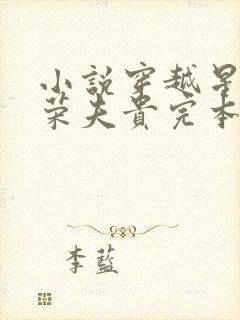 小說穿越星
荣夫贵完本
李藍